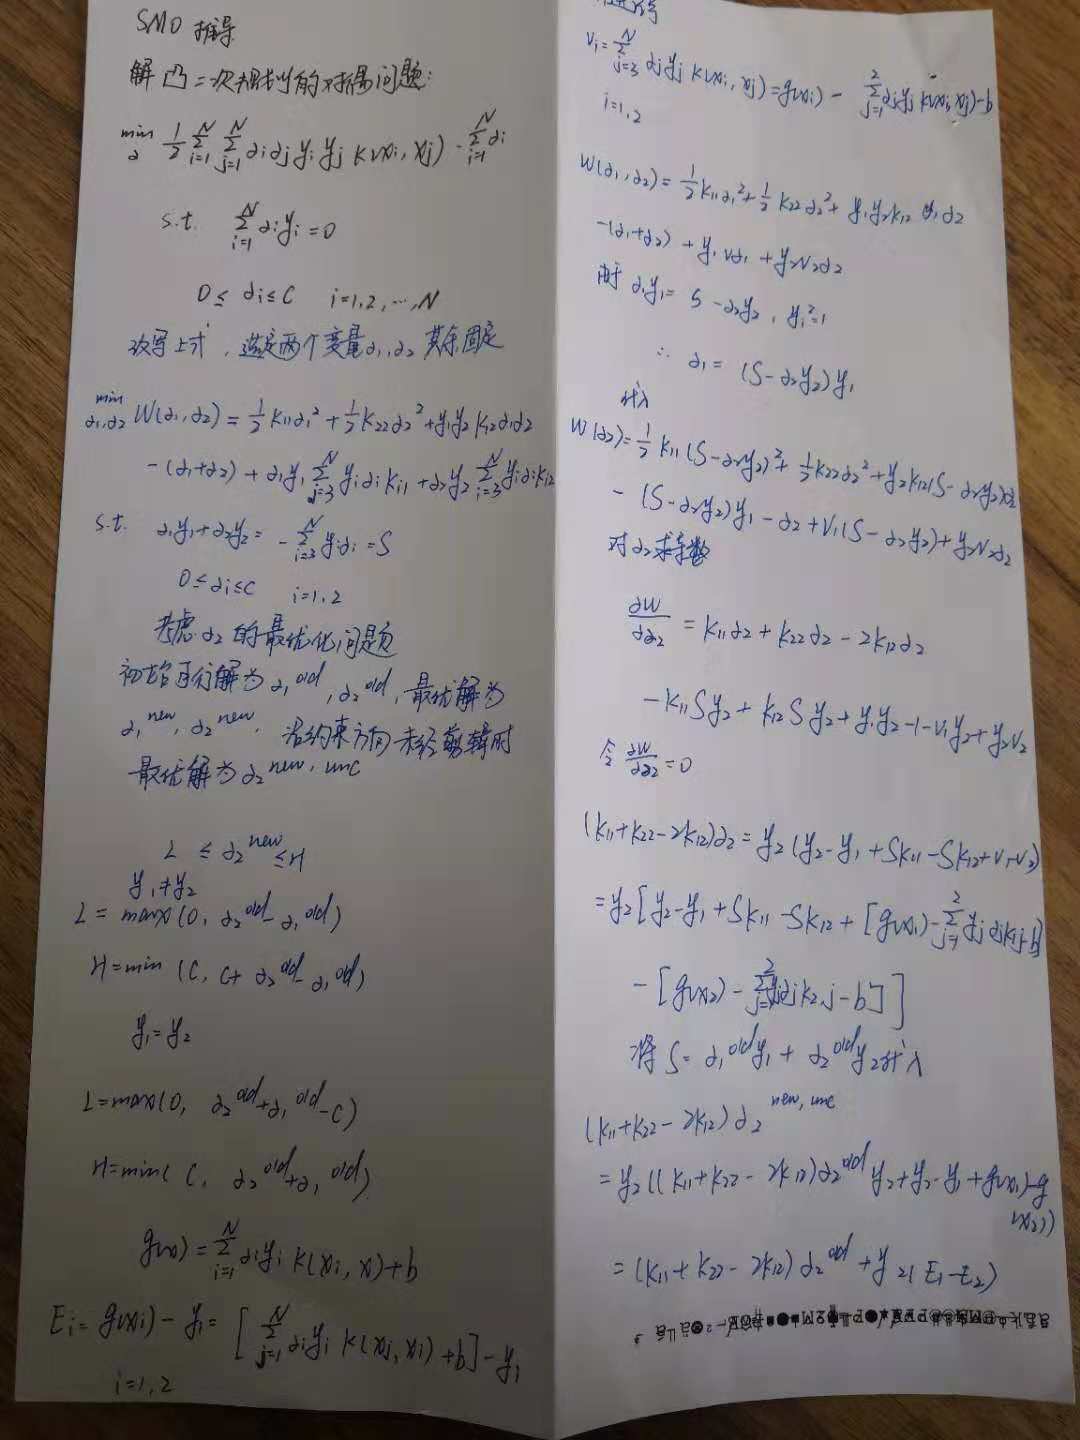 SMO 推导
解凸二次规划的对偶问题:
min α 1/2 Σ_{i=1}^N Σ_{j=1}^N αi αj yi yj K(xi, xj) - Σ_{i=1}^N αi
s.t. Σ_{i=1}^N αi yi = 0
0 ≤ αi ≤ C i=1,2,…,N
改写上式，选定两个变量α1,α2 其余固定
min α1,α2 W(α1,α2) = 1/2 K11 α1² + 1/2 K22 α2² + y1 y2 K12 α1 α2
- (α1+α2) + α1 y1 Σ_{i=3}^N yi αi Ki1 + α2 y2 Σ_{i=3}^N yi αi Ki2
s.t. α1 y1 + α2 y2 = - Σ_{i=3}^N yi αi = S
0 ≤ αi ≤ C i=1,2
考虑 α2 的最优化问题
初始可行解为 α1^old, α2^old, 最优解为
α1^new, α2^new. 沿约束方向未经剪辑时
最优解为 α2^new,unc
L ≤ α2^new ≤ H
y1 ≠ y2
L = max(0, α2^old - α1^old)
H = min (C, C + α2^old - α1^old)
y1 = y2
L = max(0, α2^old + α1^old - C)
H = min( C, α2^old + α1^old)
g(x) = Σ_{i=1}^N αi yi K(xi, x) + b
Ei = g(xi) - yi = [ Σ_{j=1}^N αi yi K(xj, xi) + b ] - yi
i=1,2
vi = Σ_{j=3}^N αj yj K(xi, xj) = g(xi) - Σ_{j=1}^2 αj yj K(xi, xj) - b
i=1,2
W(α1,α2) = 1/2 K11 α1² + 1/2 K22 α2² + y1 y2 K12 α1 α2
-(α1+α2) + y1 v1 α1 + y2 v2 α2
由于 α1 y1 = S - α2 y2, yi² = 1
∴ α1 = (S - α2 y2) y1
代入
W(α2) = 1/2 K11 (S - α2 y2)² + 1/2 K22 α2² + y2 K12 (S - α2 y2) α2
- (S - α2 y2) y1 - α2 + v1 (S - α2 y2) + y2 v2 α2
对 α2 求导数
∂W/∂α2 = K11 α2 + K22 α2 - 2K12 α2
- K11 S y2 + K12 S y2 + y1 y2 - 1 - v1 y2 + y2 v2
令 ∂W/∂α2 = 0
(K11 + K22 - 2K12) α2 = y2 (y2 - y1 + SK11 - SK12 + v1 - v2)
= y2 [ y2 - y1 + SK11 - SK12 + [ g(x1) - Σ_{j=1}^2 yj αj K1j - b ]
- [ g(x2) - Σ_{j=1}^2 yj αj K2j - b ] ]
将 S = α1^old y1 + α2^old y2 代入
(K11 + K22 - 2K12) α2^new,unc
= y2 ((K11 + K22 - 2K12) α2^old y2 + y2 - y1 + g(x1) - g
(x2))
= (K11 + K22 - 2K12) α2^old + y2 (E1 - E2)